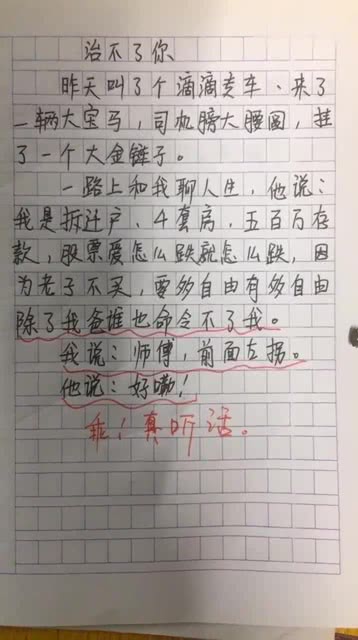 治不了你
昨天叫了个滴滴专车、来了
一辆大宝马，司机膀大腰圆，挂
了一个大金链子。
一路上和我聊人生，他说：
我是拆迁户、4套房，五百万存
款，股票爱怎么跌就怎么跌，因
为老子不买，要多自由有多自由
除了我爸谁也命令不了我。
我说：师傅，前面左拐。
他说：好嘞！
乖！真听话。